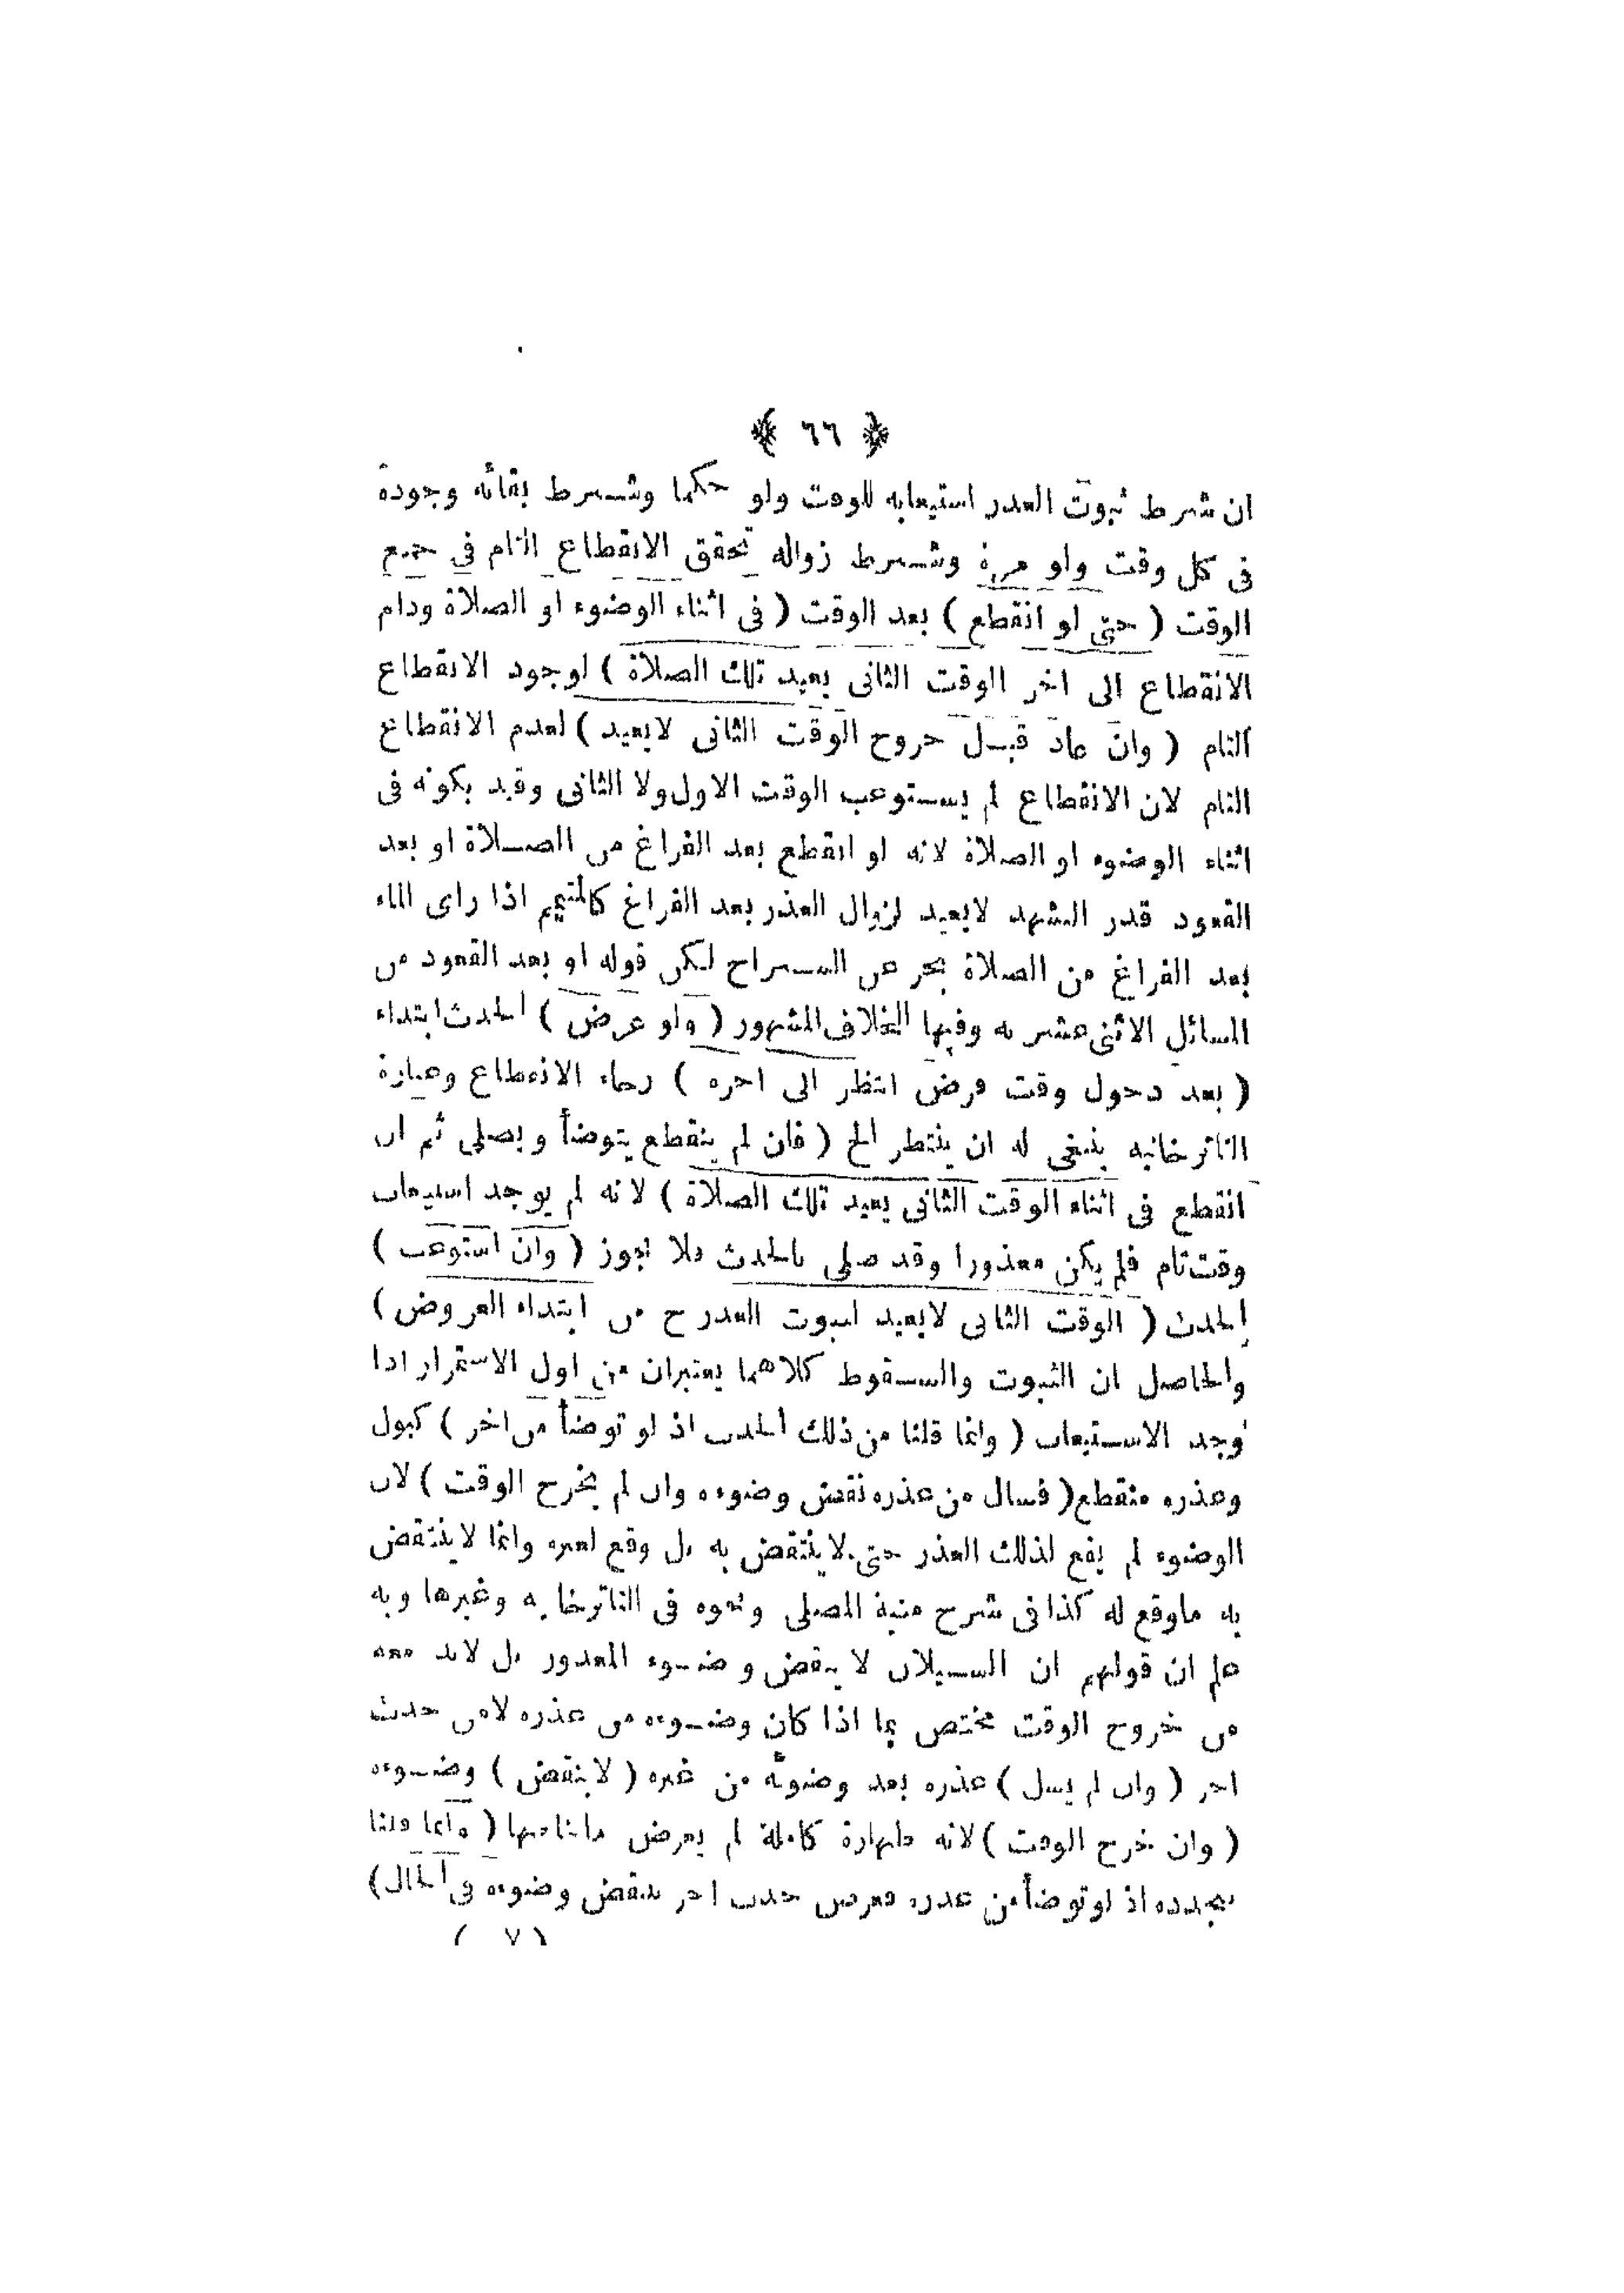 ﴿ ٦٦ ﴾
ان شرط ثبوت العذر استيعابه للوقت ولو حكما وشرط بقائه وجوده
فى كل وقت ولو مرة وشرط زواله تحقق الانقطاع التام فى جميع
الوقت ( حتى لو انقطع ) بعد الوقت ( فى اثناء الوضوء او الصلاة ودام
الانقطاع الى اخر الوقت الثانى يعيد تلك الصلاة ) لوجود الانقطاع
التام ( وان عاد قبل خروج الوقت الثانى لايعيد ) لعدم الانقطاع
التام لان الانقطاع لم يستوعب الوقت الاول ولا الثانى وقيد بكونه فى
اثناء الوضوء او الصلاة لانه لو انقطع بعد الفراغ من الصلاة او بعد
القعود قدر التشهد لايعيد لزوال العذر بعد الفراغ كالمتيمم اذا راى الماء
بعد الفراغ من الصلاة بحر عن السراج لكن قوله او بعد القعود من
المسائل الاثنى عشريه وفيها الخلاف المشهور ( ولو عرض ) الحدث ابتداء
( بعد دخول وقت فرض انتظر الى اخره ) رجاء الانقطاع وعبارة
التاترخانيه ينبغى له ان ينتظر الخ ( فان لم ينقطع يتوضأ ويصلى ثم ان
انقطع فى اثناء الوقت الثانى يعيد تلك الصلاة ) لانه لم يوجد استيعاب
وقت تام فلم يكن معذورا وقد صلى بالحدث فلا يجوز ( وان استوعب )
الحدث ( الوقت الثانى لايعيد لثبوت العذر ح من ابتداء العروض )
والحاصل ان الثبوت والسقوط كلاهما يعتبران من اول الاستمرار اذا
وجد الاستيعاب ( وانما قلنا من ذلك الحدث اذ لو توضأ من اخر ) كبول
وعذره منقطع ( فسال من عذره نقض وضوءه وان لم يخرج الوقت ) لان
الوضوء لم يقع لذلك العذر حتى لاينتقض به بل وقع لغيره وانما لاينتقض
به ماوقع له كذا فى شرح منية المصلى ونحوه فى التاترخانيه وغيرها وبه
علم ان قولهم ان السيلان لا ينقض وضوء المعذور بل لابد معه
من خروج الوقت مختص بما اذا كان وضوءه من عذره لامن حدث
اخر ( وان لم يسل ) عذره بعد وضوئه من غيره ( لاينقض ) وضوءه
( وان خرج الوقت ) لانه طهارة كاملة لم يعرض ماينافيها ( وانما قلنا
بتجدده اذ لو توضأ من عذره فعرض حدث اخر ينقض وضوءه فى الحال )
( ٧ )